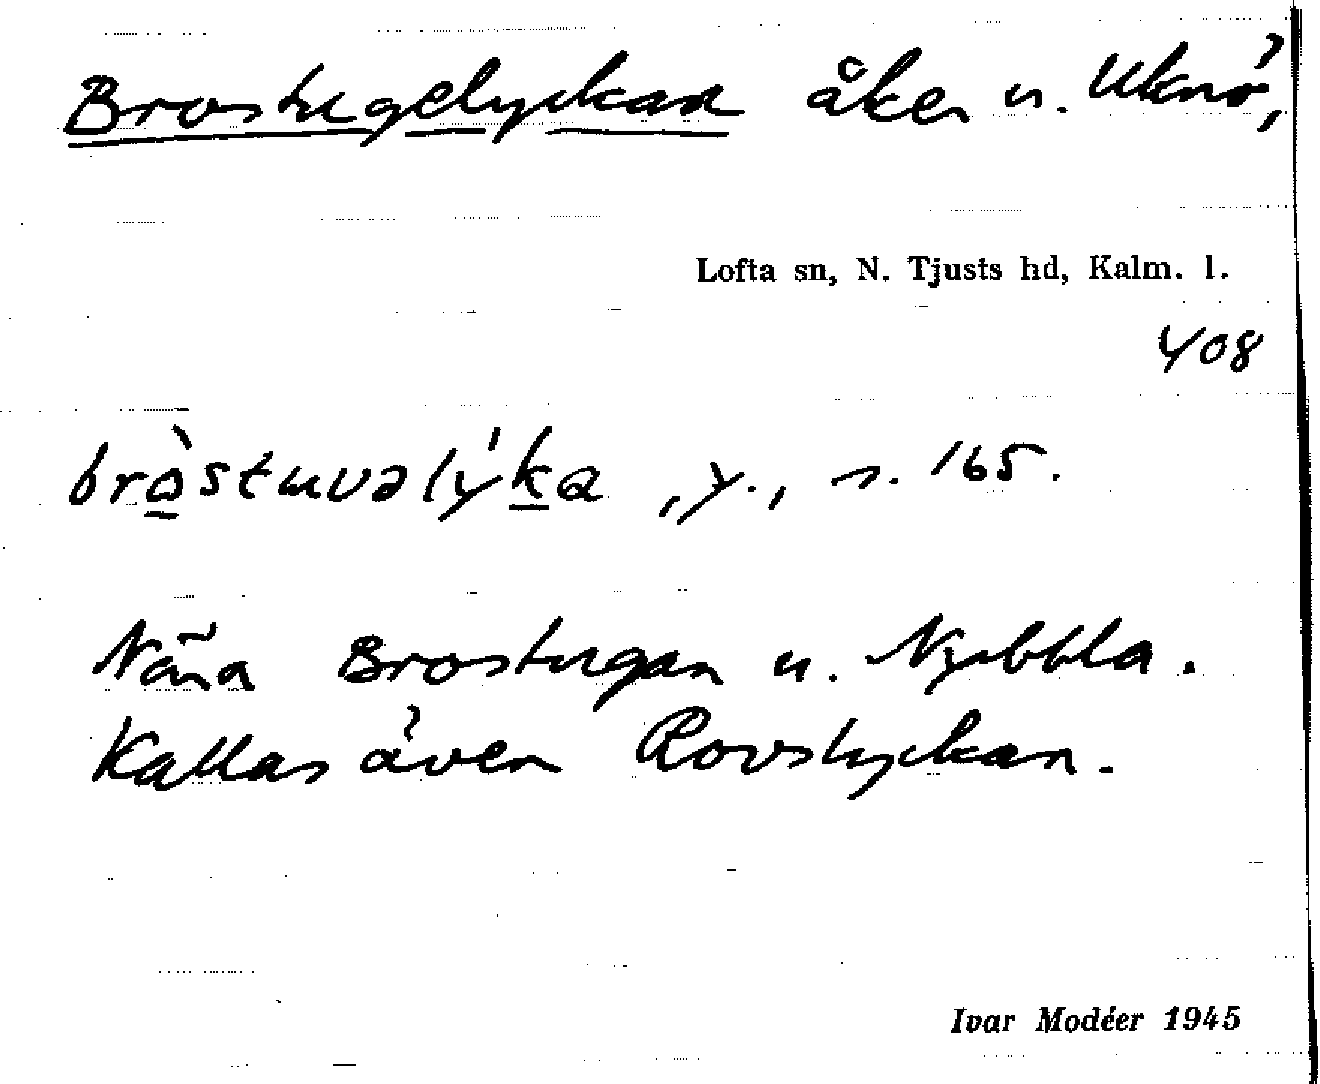 Brostugelyckan åker u. Uknö,
Lofta sn, N. Tjusts hd, Kalm. l.
408
bròstuvəlýka , y., s. 165.
Nära Brostugan u. Nybbla.
Kallas även Rovslyckan.
Ivar Modéer 1945